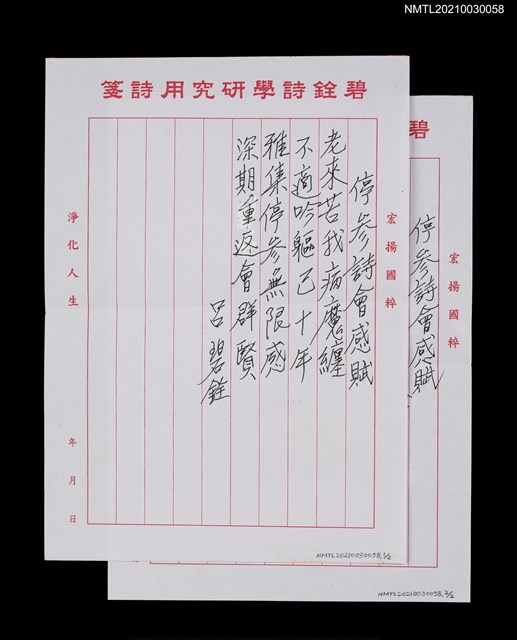 NMTL20210030058
碧銓詩學研究用詩箋
宏揚國粹
停參詩會感賦
老來苦我病魔纏
不適吟軀已十年
雅集停參無限感
深期重返會群賢
呂碧銓
淨化人生
年月日
NMTL20210030058,1/2
碧
宏揚國粹
停參詩會感賦
NMTL20210030058,2/2